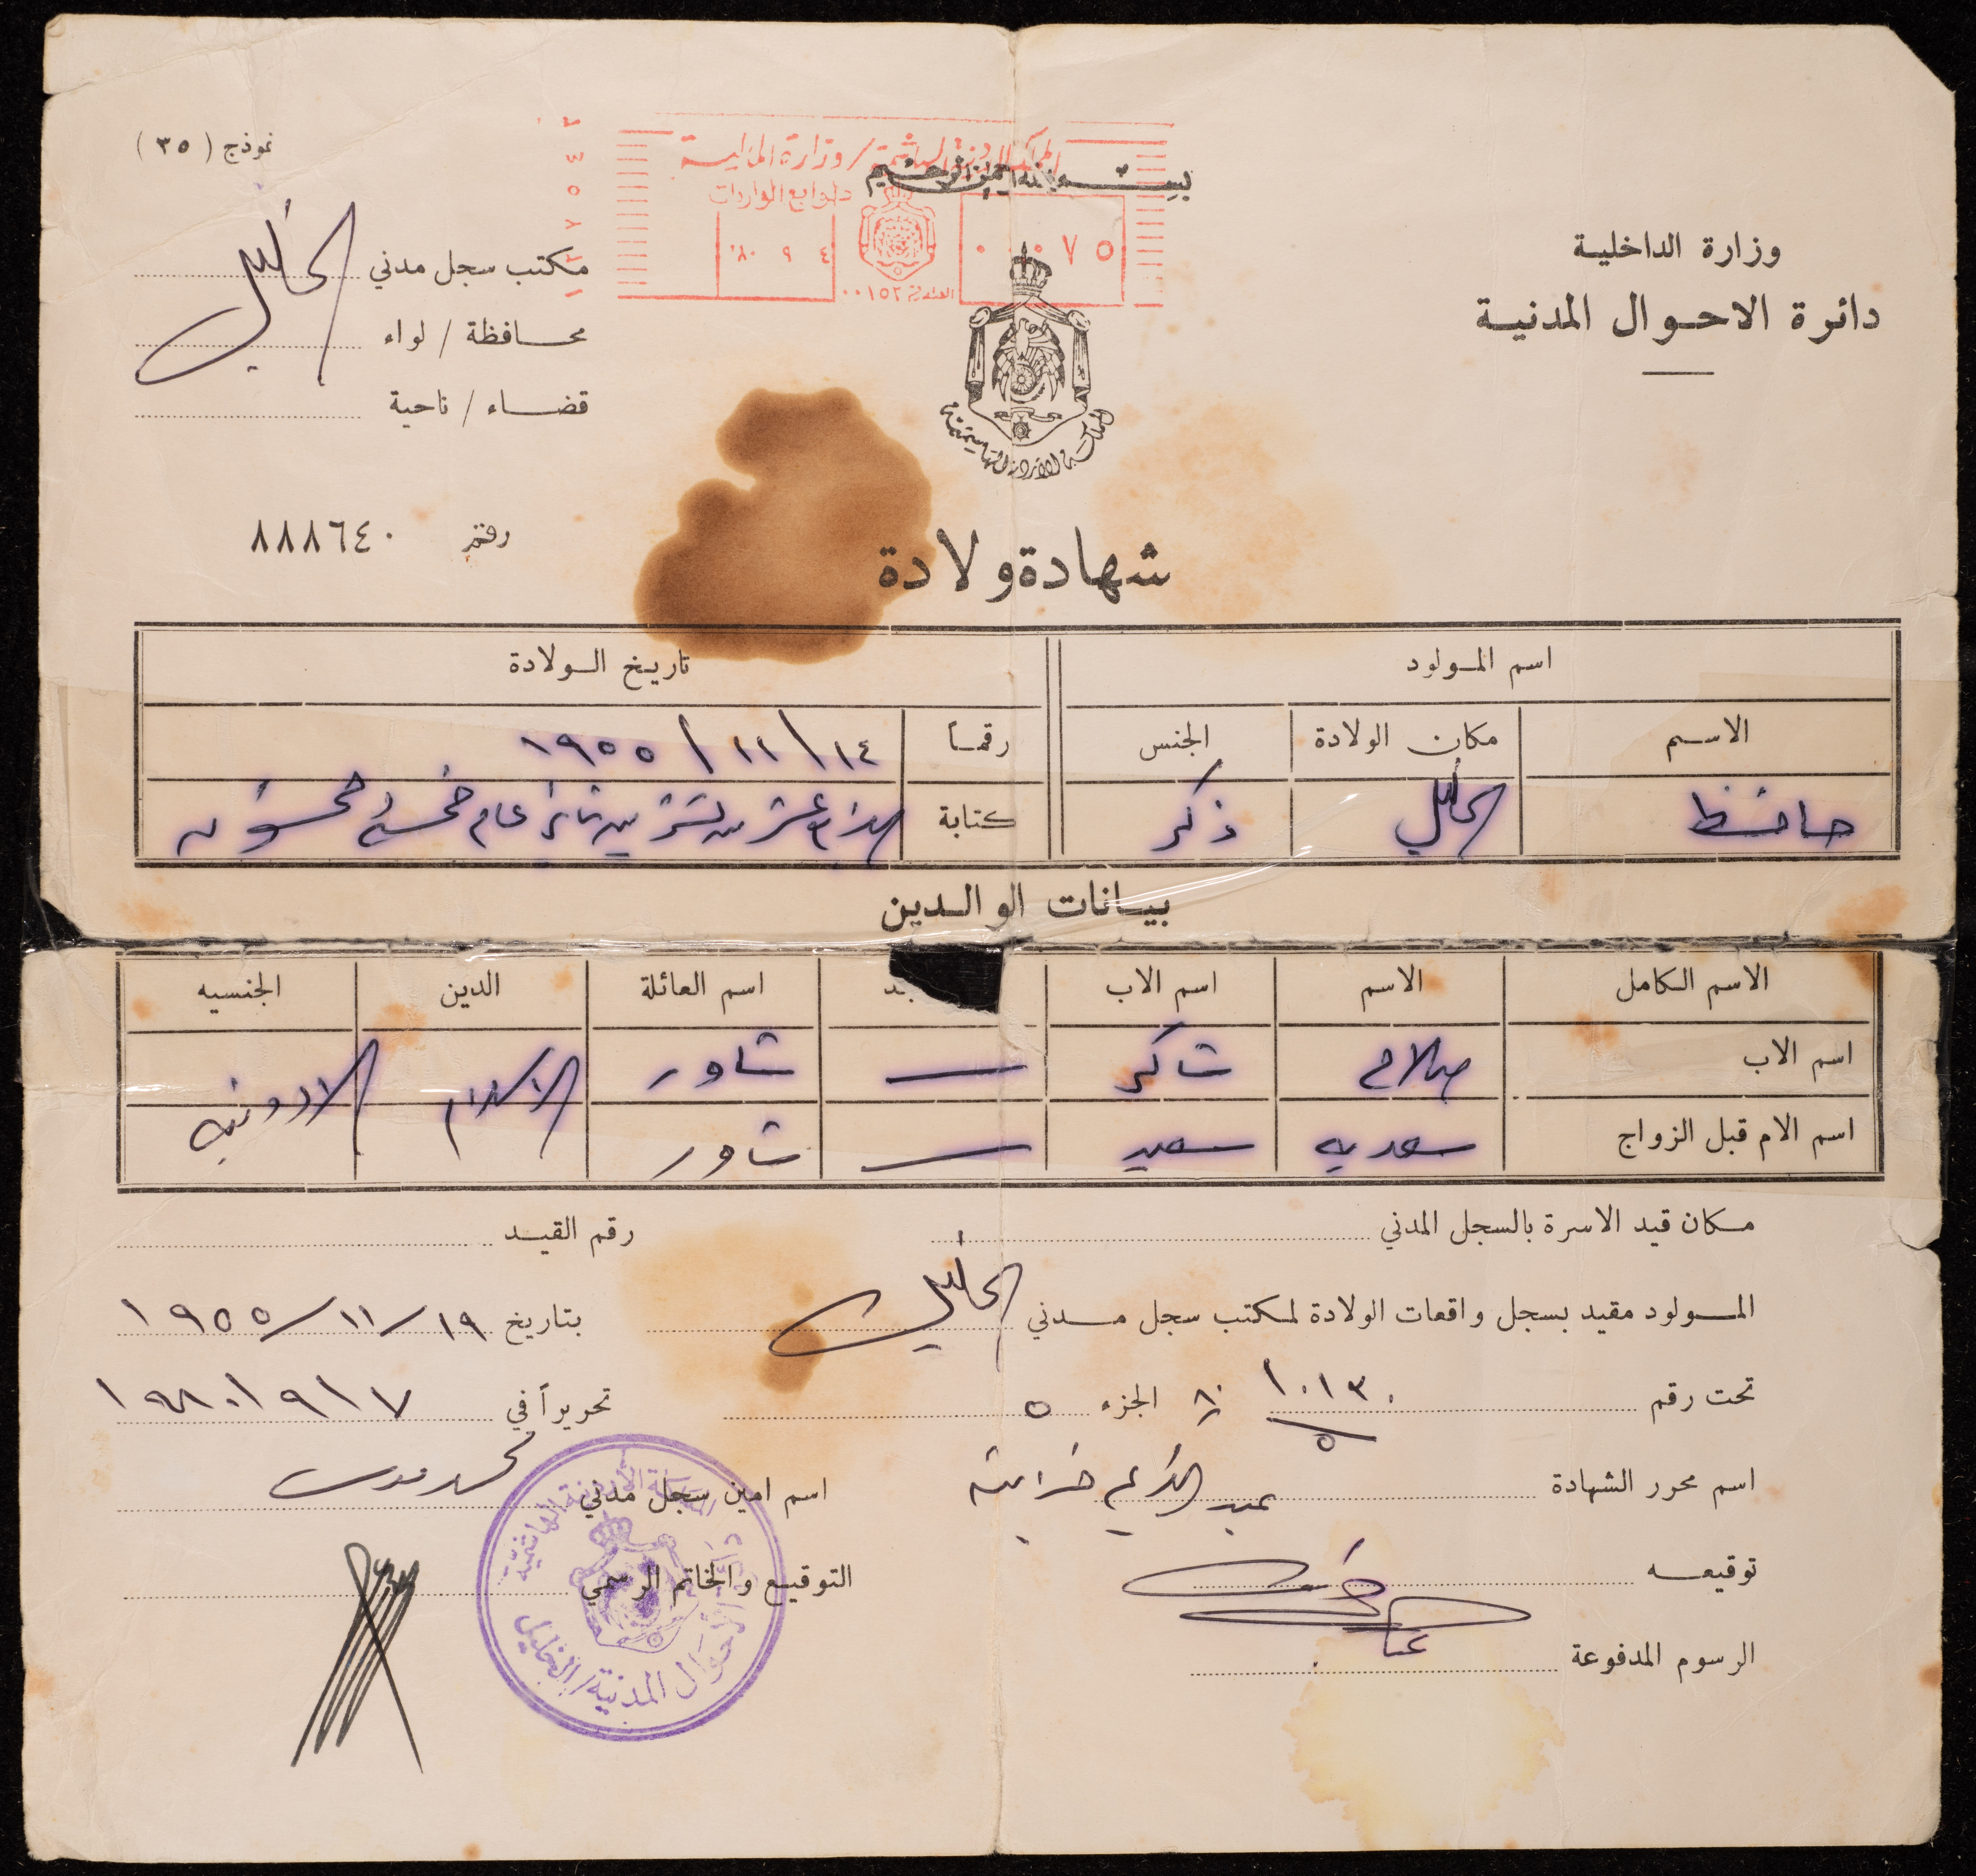 نموذج ( ٣٥ )
المملكة الاردنية الهاشمية / وزارة المالية
بسم الله الرحمن الرحيم
طوابع الواردات
٠٠٧٥
٤ ٩ ٨٠
٠٠١٥٢
وزارة الداخلية
دائرة الاحوال المدنية
مكتب سجل مدني الخليل
محافظة / لواء
قضاء / ناحية
المملكة الأردنية الهاشمية
رقم ٨٨٨٦٤٠
شهادة ولادة
اسم المولود تاريخ الولادة
الاسم مكان الولادة الجنس رقماً ١٤ / ١١ / ١٩٥٥
حافظ الخليل ذكر كتابة الرابع عشر من تشرين ثاني عام خمسة وخمسون
بيانات الوالدين
الاسم الكامل الاسم اسم الاب اسم العائلة الدين الجنسيه
اسم الاب صلاح شاكر — شاور الاسلام الاردنيه
اسم الام قبل الزواج سعديه سعيد — شاور
مكان قيد الاسرة بالسجل المدني رقم القيد
المولود مقيد بسجل واقعات الولادة لمكتب سجل مدني الخليل بتاريخ ١٩/١١/١٩٥٥
تحت رقم ١٠١٣٠ ٨٠ الجزء ٥ تحريراً في ٧/٩/١٩٨٠
٥
اسم محرر الشهادة عبد الكريم اسم امين سجل مدني محمد
توقيعه التوقيع والخاتم الرسمي
الرسوم المدفوعة
المملكة الأردنية الهاشمية
دائرة الأحوال المدنية/الخليل